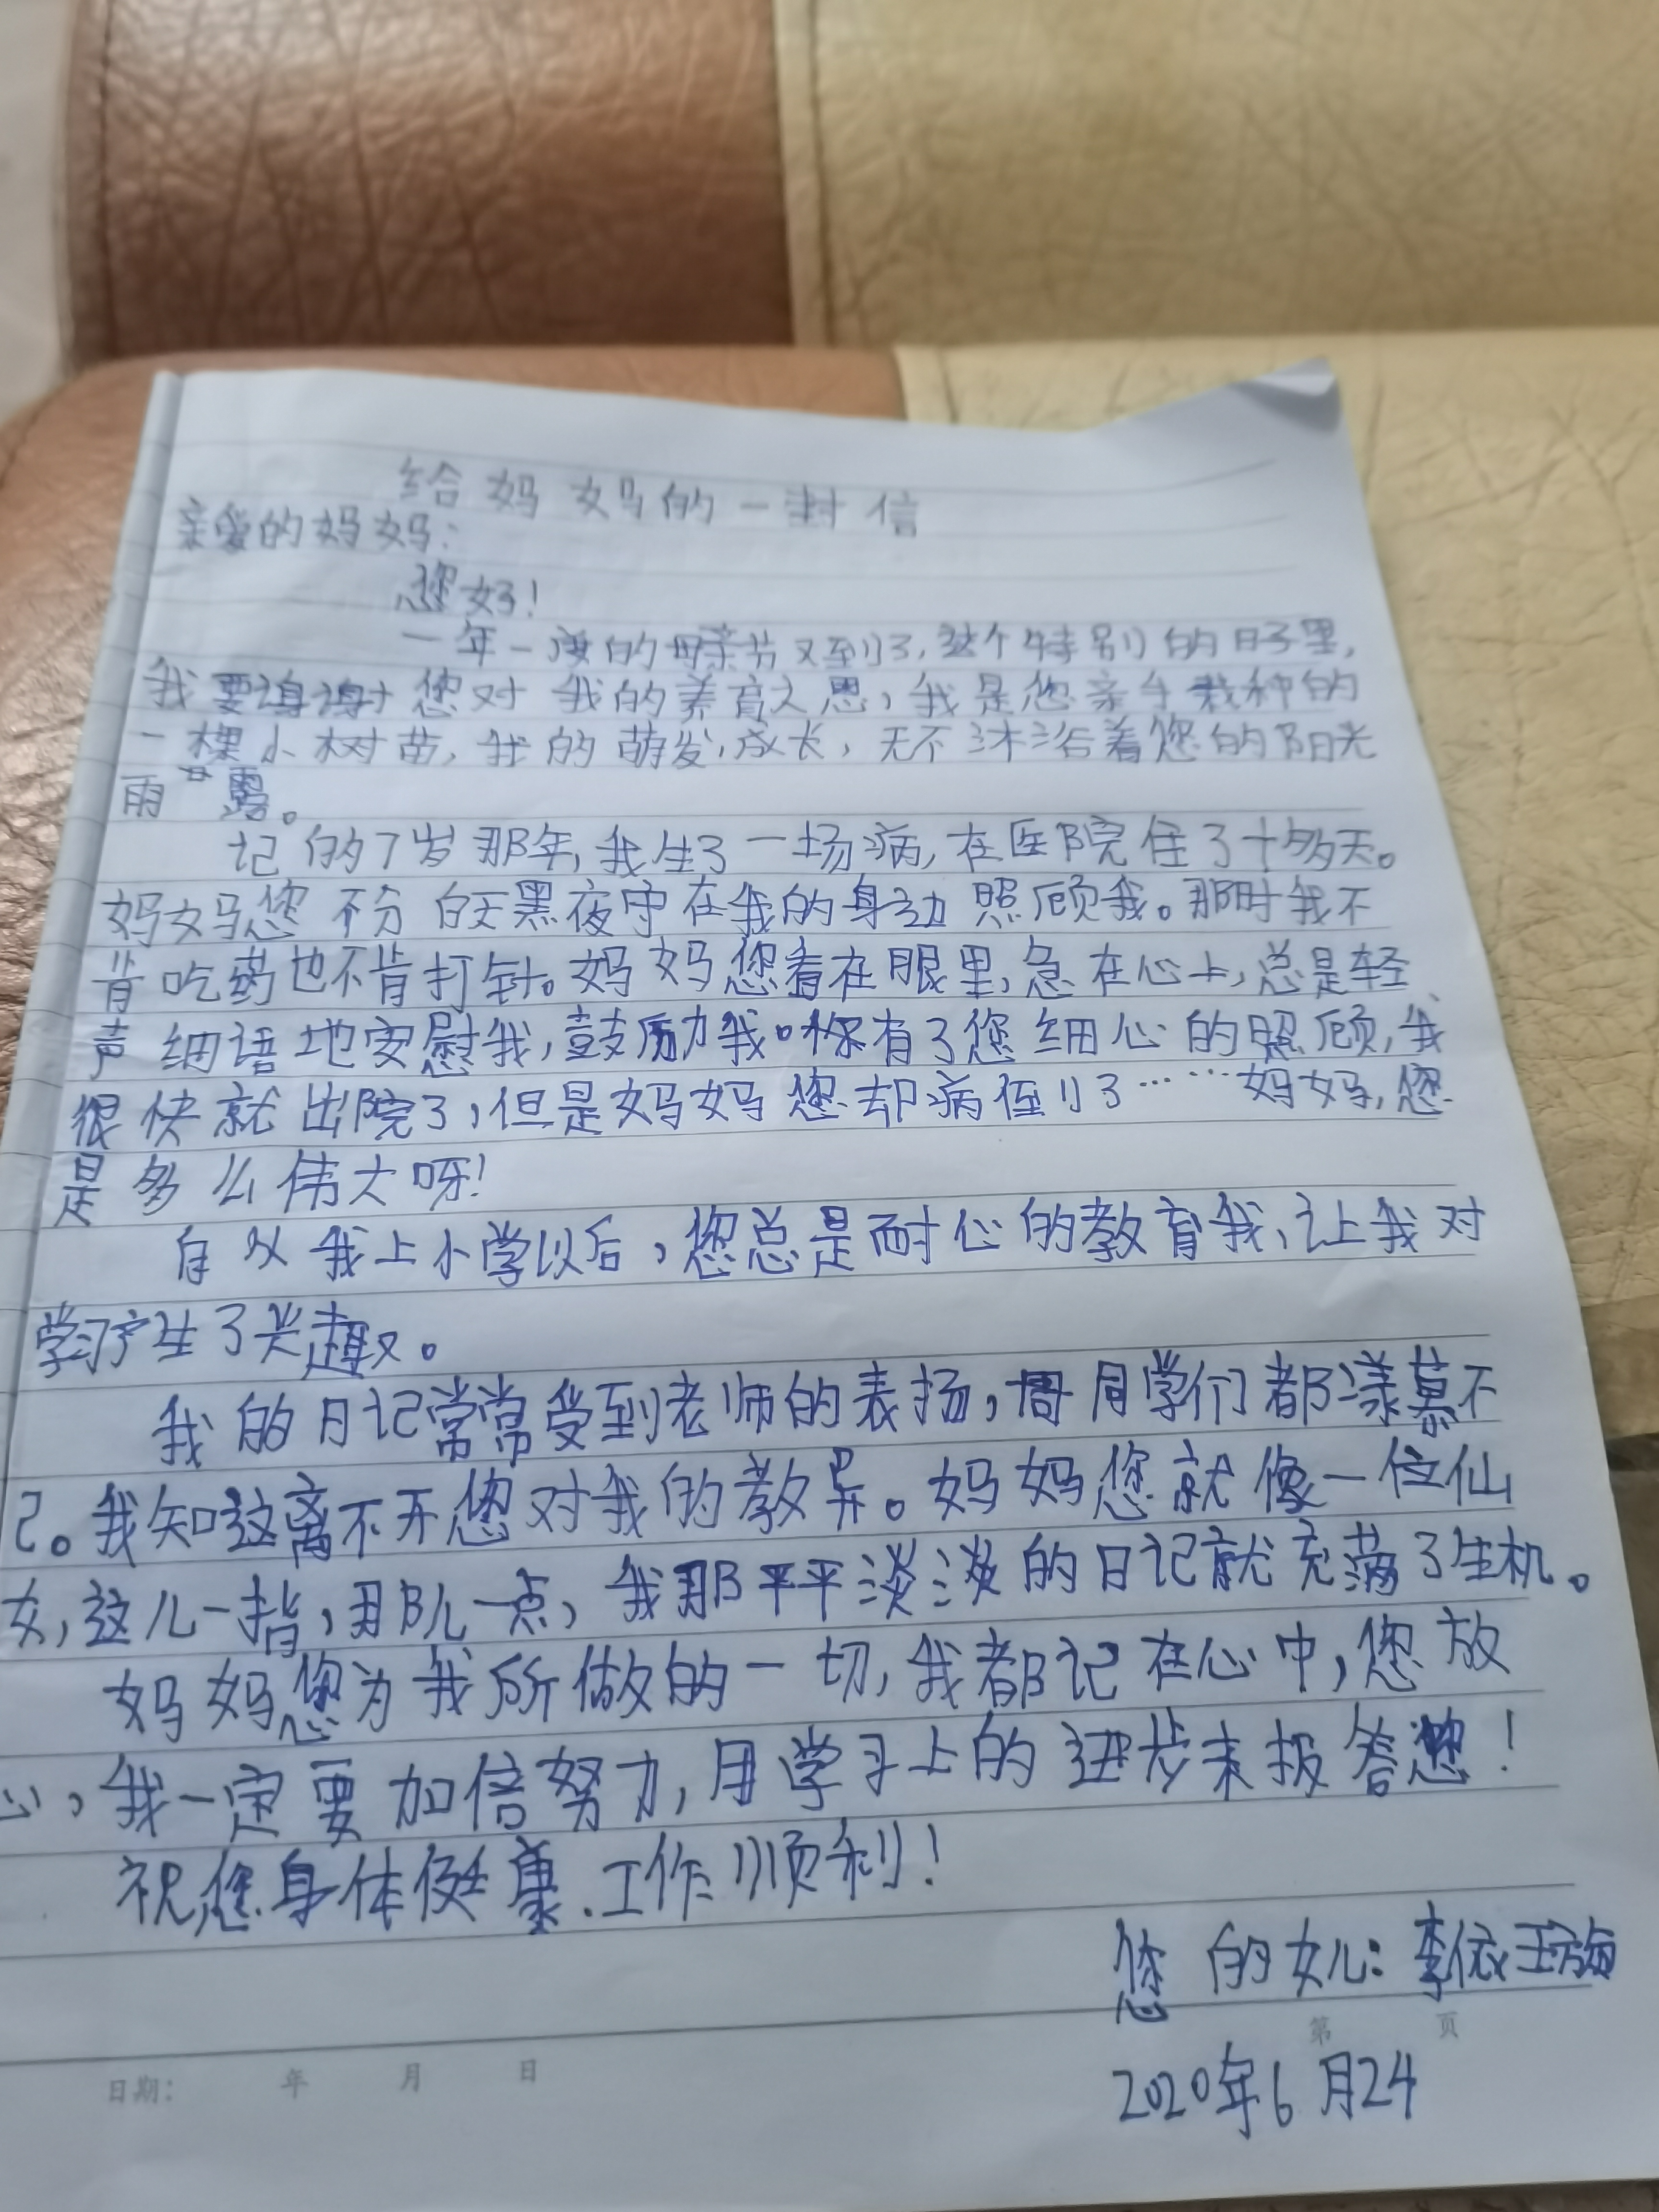 给妈妈的一封信
亲爱的妈妈：
您好！
一年一度的母亲节又到了，这个特别的日子里，
我要谢谢您对我的养育之恩，我是您亲手栽种的
一棵小树苗，我的萌发，成长，无不沐浴着您的阳光
雨露。
记的7岁那年，我生了一场病，在医院住了十多天。
妈妈您不分白天黑夜守在我的身边照顾我。那时我不
肯吃药也不肯打针。妈妈您看在眼里，急在心上，总是轻
声细语地安慰我，鼓励我。有了您细心的照顾，我
很快就出院了，但是妈妈您却病倒了……妈妈，您
是多么伟大呀！
自从我上小学以后，您总是耐心的教育我，让我对
学习产生了兴趣。
我的日记常常受到老师的表扬，同学们都羡慕不
已。我知这离不开您对我的教导。妈妈您就像一位仙
女，这儿一指，那儿一点，我那平平淡淡的日记就充满了生机。
妈妈您为我所做的一切，我都记在心中，您放
心，我一定要加倍努力，用学习上的进步来报答您！
祝您身体健康．工作顺利！
您的女儿：李依
第 页
日期： 年 月 日
2020年6月24